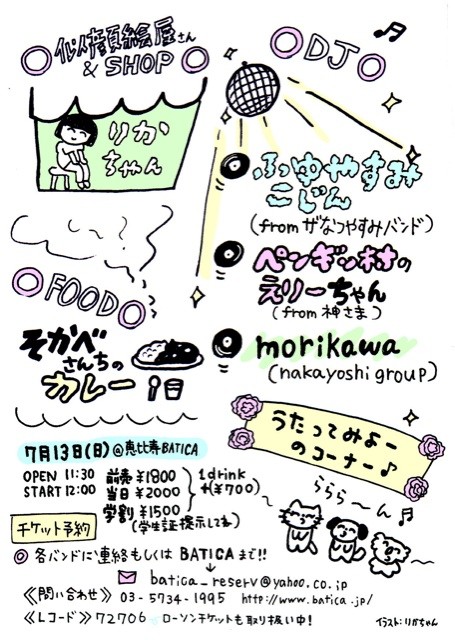 似顔絵屋さん
& SHOP
りか
ちゃん
DJ
ふゆやすみ
こじん
(from ザなつやすみバンド)
ペンギン村の
えりーちゃん
(from 神さま)
morikawa
(nakayoshi group)
FOOD
そかべ
さんちの
カレー
うたってみよー
のコーナー♪
ららら〜ん♬
7月13日(日)@恵比寿BATICA
OPEN 11:30
START 12:00
前売 ¥1800
当日 ¥2000
学割 ¥1500
(学生証提示してね)
1drink
+(¥700)
チケット予約
◎各バンドに連絡もしくは BATICAまで!!
batica_reserv@yahoo.co.jp
≪問い合わせ≫ 03-5734-1995 http://www.batica.jp/
≪Lコード≫ 72706 ローソンチケットも取り扱い中!
イラスト:りかちゃん